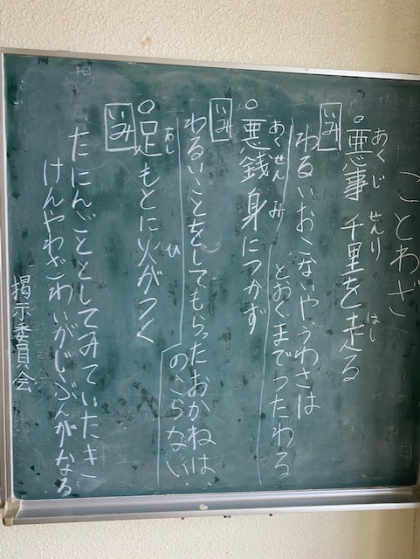 ことわざ
あくじ せんり はし
○悪事 千里を走る
いみ
わるいおこないやうわさは
とおくまでつたわる
あくせん み
○悪銭 身につかず
いみ
わるいことをしてもらったおかねは、
のこらない
あし ひ
○足もとに火がつく
いみ
たにんごととしてみていたき
けんやわざわいがじぶんがなる
掲示委員会